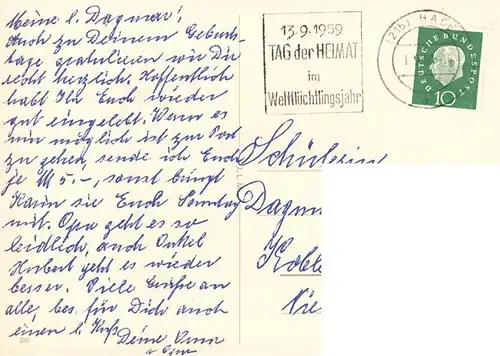 Meine l. Dagmar!
Auch zu Deinem Geburts-
tage gratulieren wir Dir
recht herzlich. Hoffentlich
habt Ihr Euch wieder
gut eingelebt. Wenn es
mir möglich ist zur Post
zu gehen, sende ich Euch
je M 5.-, sonst bringt
Karin sie Euch Sonntag
mit. Opa geht es so
leidlich, auch Onkel
Herbert geht es wieder
besser. Viele Grüße an
alle, bes. für Dich auch
einen l. Kuß
Deine
13.9.1959
TAG der HEIMAT
im
Weltflüchtlingsjahr
DEUTSCHE BUNDESPOST
10
Schülerin
Dagmar